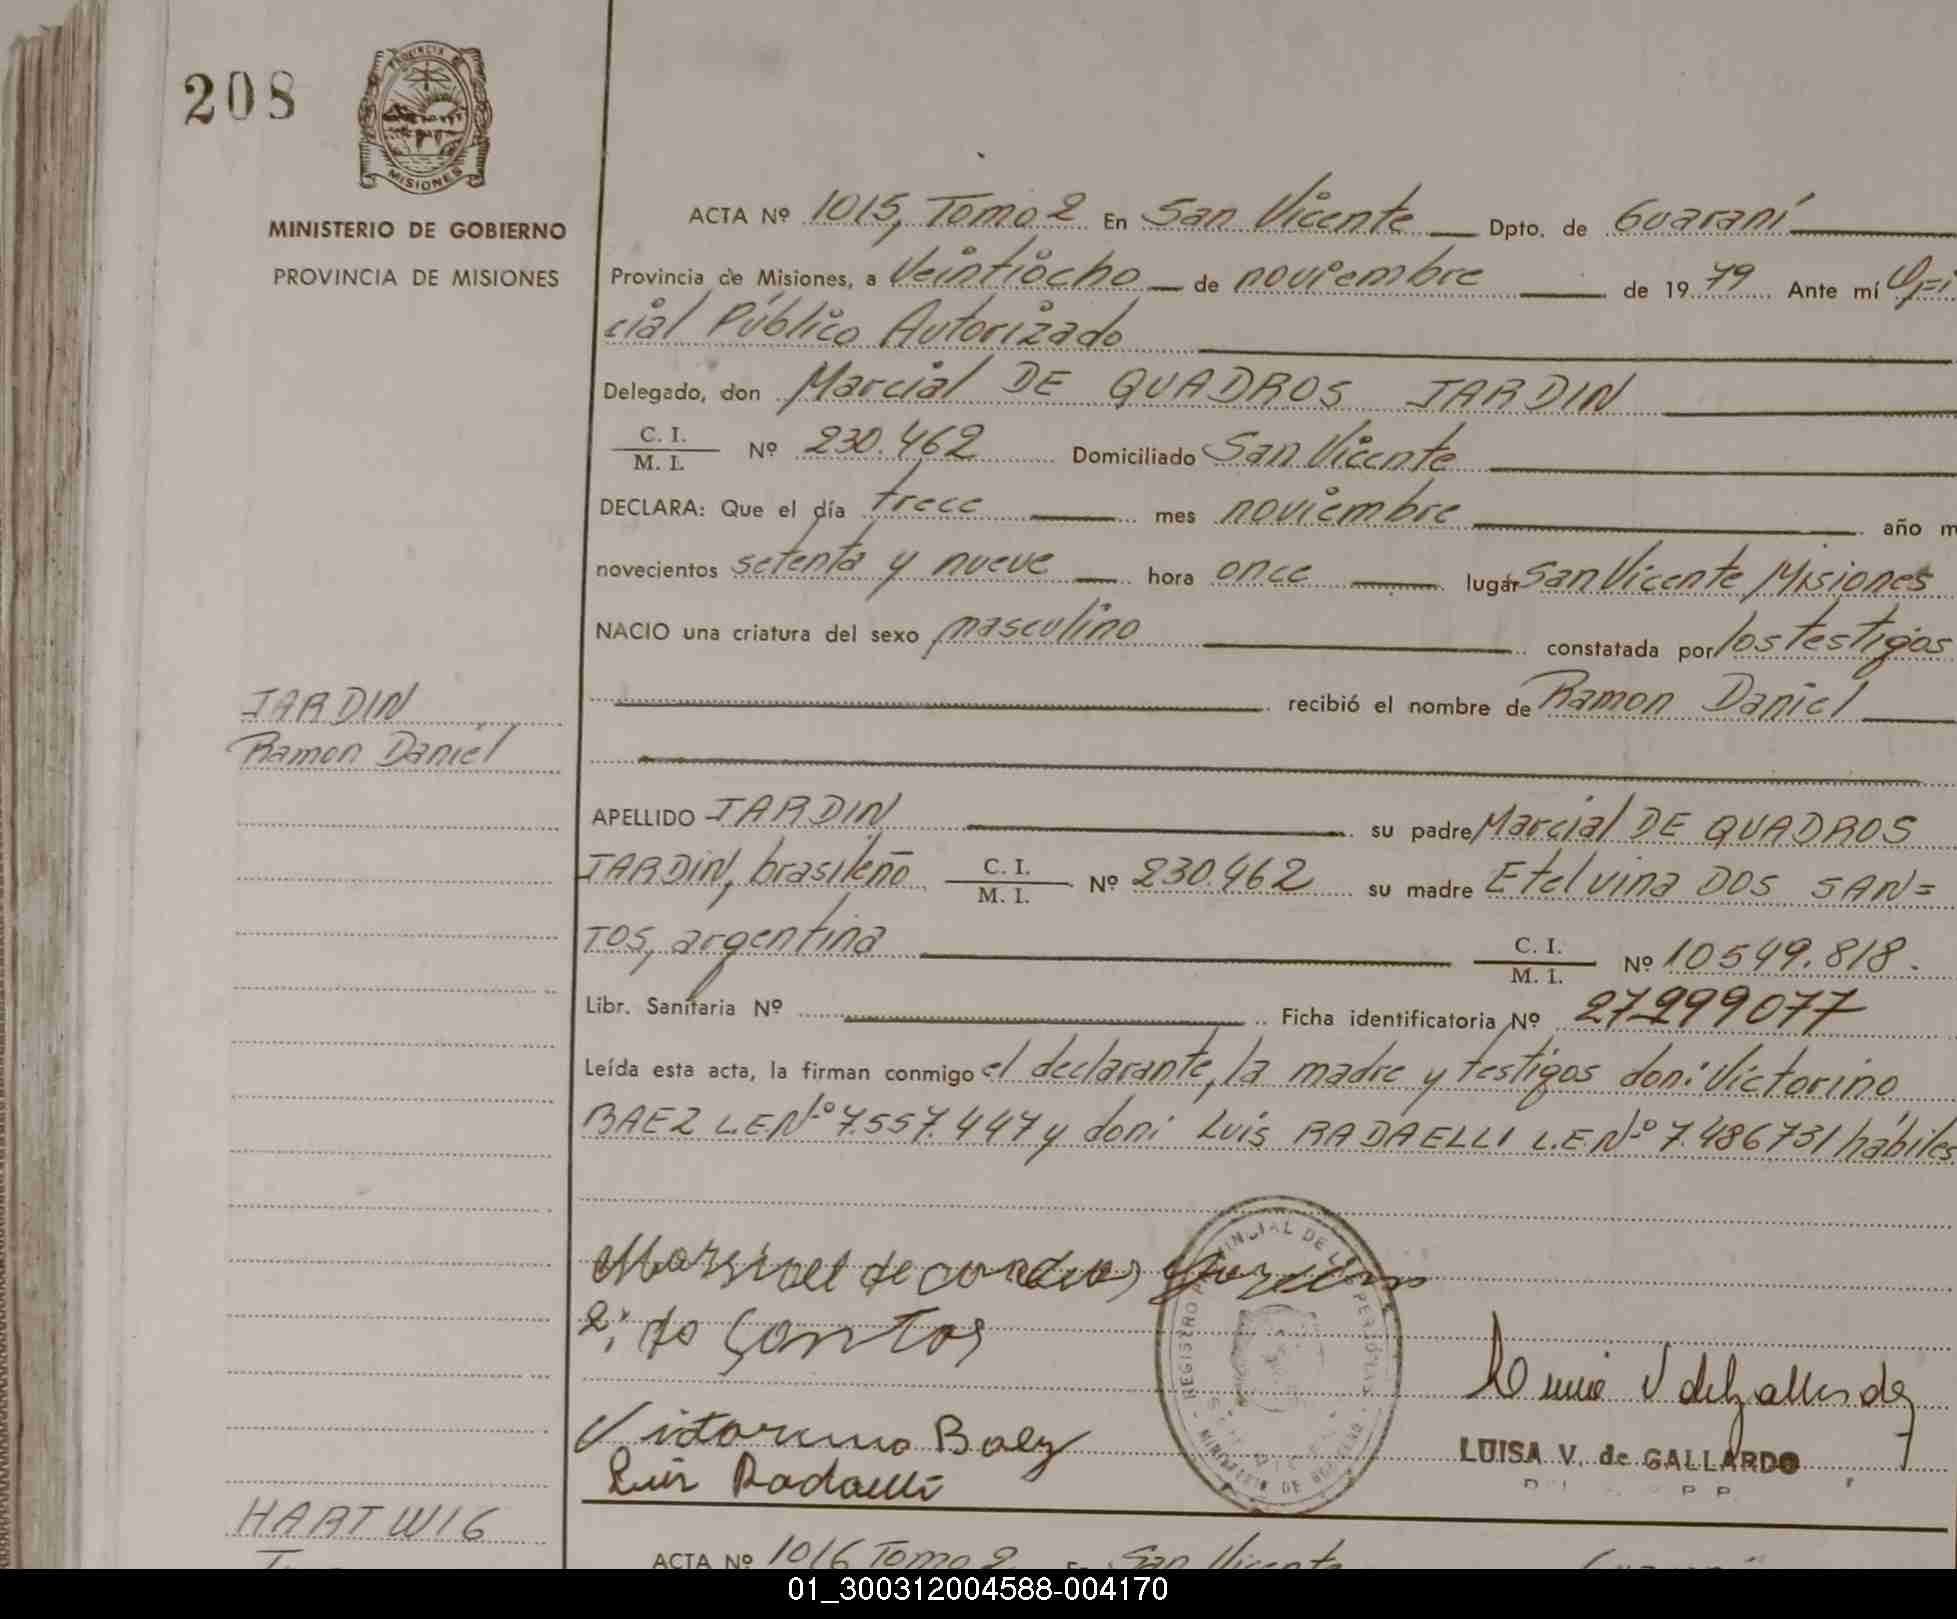 208
PROVINCIA DE
MISIONES
MINISTERIO DE GOBIERNO
PROVINCIA DE MISIONES
ACTA Nº 1015, Tomo 2 En San Vicente Dpto. de Guaraní
Provincia de Misiones, a veintiocho de noviembre de 1979 Ante mí Ofi=
cial Público Autorizado
Delegado, don Marcial DE QUADROS JARDIN
C. I.
M. I. Nº 230.462 Domiciliado San Vicente
DECLARA: Que el día trece mes noviembre año m
novecientos setenta y nueve hora once lugar San Vicente Misiones
NACIO una criatura del sexo masculino constatada por los testigos
recibió el nombre de Ramon Daniel
JARDIN
Ramon Daniel
APELLIDO JARDIN su padre Marcial DE QUADROS
JARDIN, brasileño C. I.
M. I. Nº 230.462 su madre Etelvina DOS SAN=
TOS, argentina C. I.
M. I. Nº 10549.818.
Libr. Sanitaria Nº Ficha identificatoria Nº 27299077
Leída esta acta, la firman conmigo el declarante, la madre y testigos don: Victorino
BAEZ L.E.Nº 7.557.447 y don: Luis RADAELLI L.E.Nº 7.486731 hábiles
do Santos
Victorino Baez
Luis Radaelli
LUISA V. de GALLARDO
HARTWIG
ACTA Nº 1016 Tomo 2 En San Vicente
01_300312004588-004170